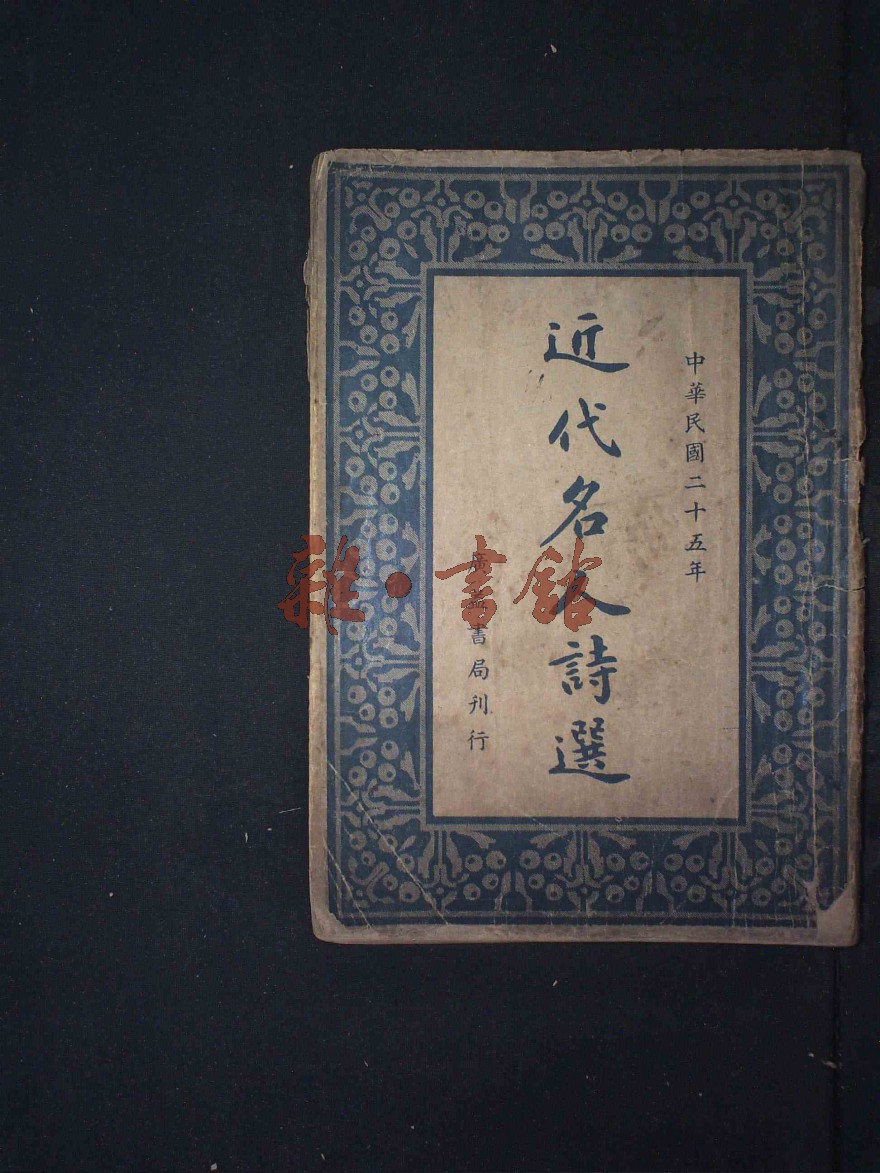 中華民國二十五年
近代名人詩選
廣益書局刊行
雜·書館